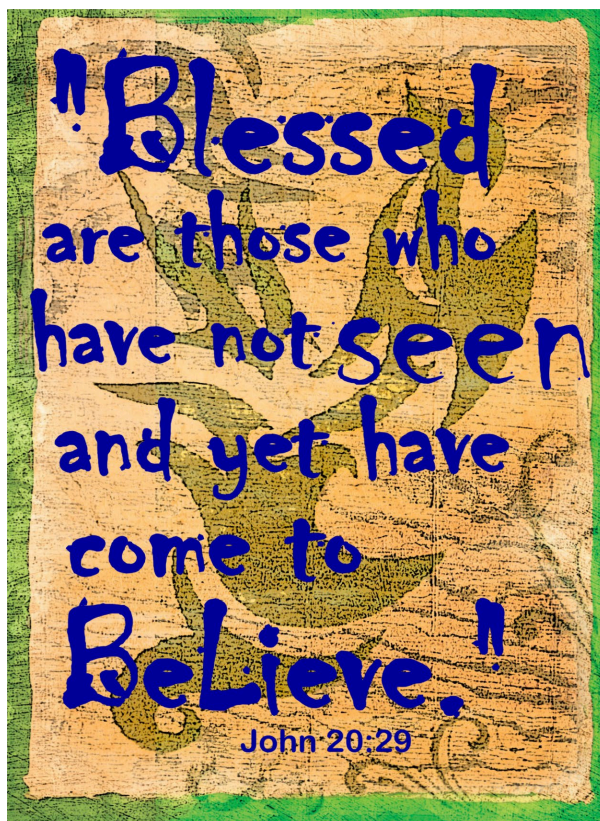 "Blessed
are those who
have not seen
and yet have
come to
BeLieve."
John 20:29